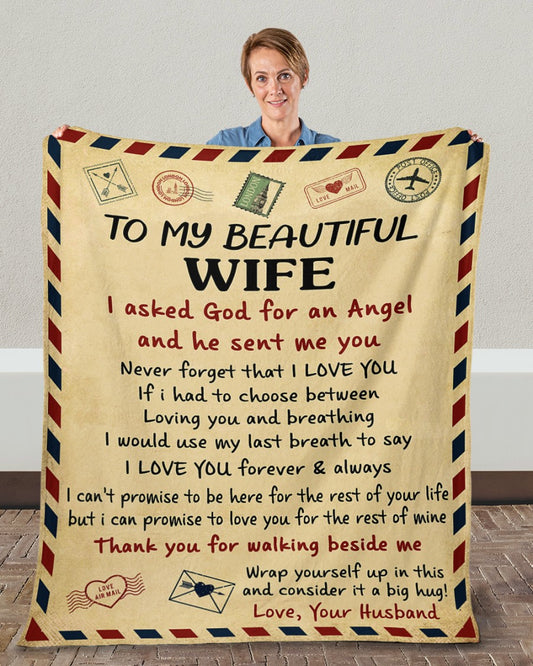 LONDON
LOVE MAIL
POST OFFICE
TO MY BEAUTIFUL
WIFE
I asked God for an Angel
and he sent me you
Never forget that I LOVE YOU
If i had to choose between
Loving you and breathing
I would use my last breath to say
I LOVE YOU forever & always
I can't promise to be here for the rest of your life
but i can promise to love you for the rest of mine
Thank you for walking beside me
Wrap yourself up in this
and consider it a big hug!
Love, Your Husband
LOVE
AIR MAIL